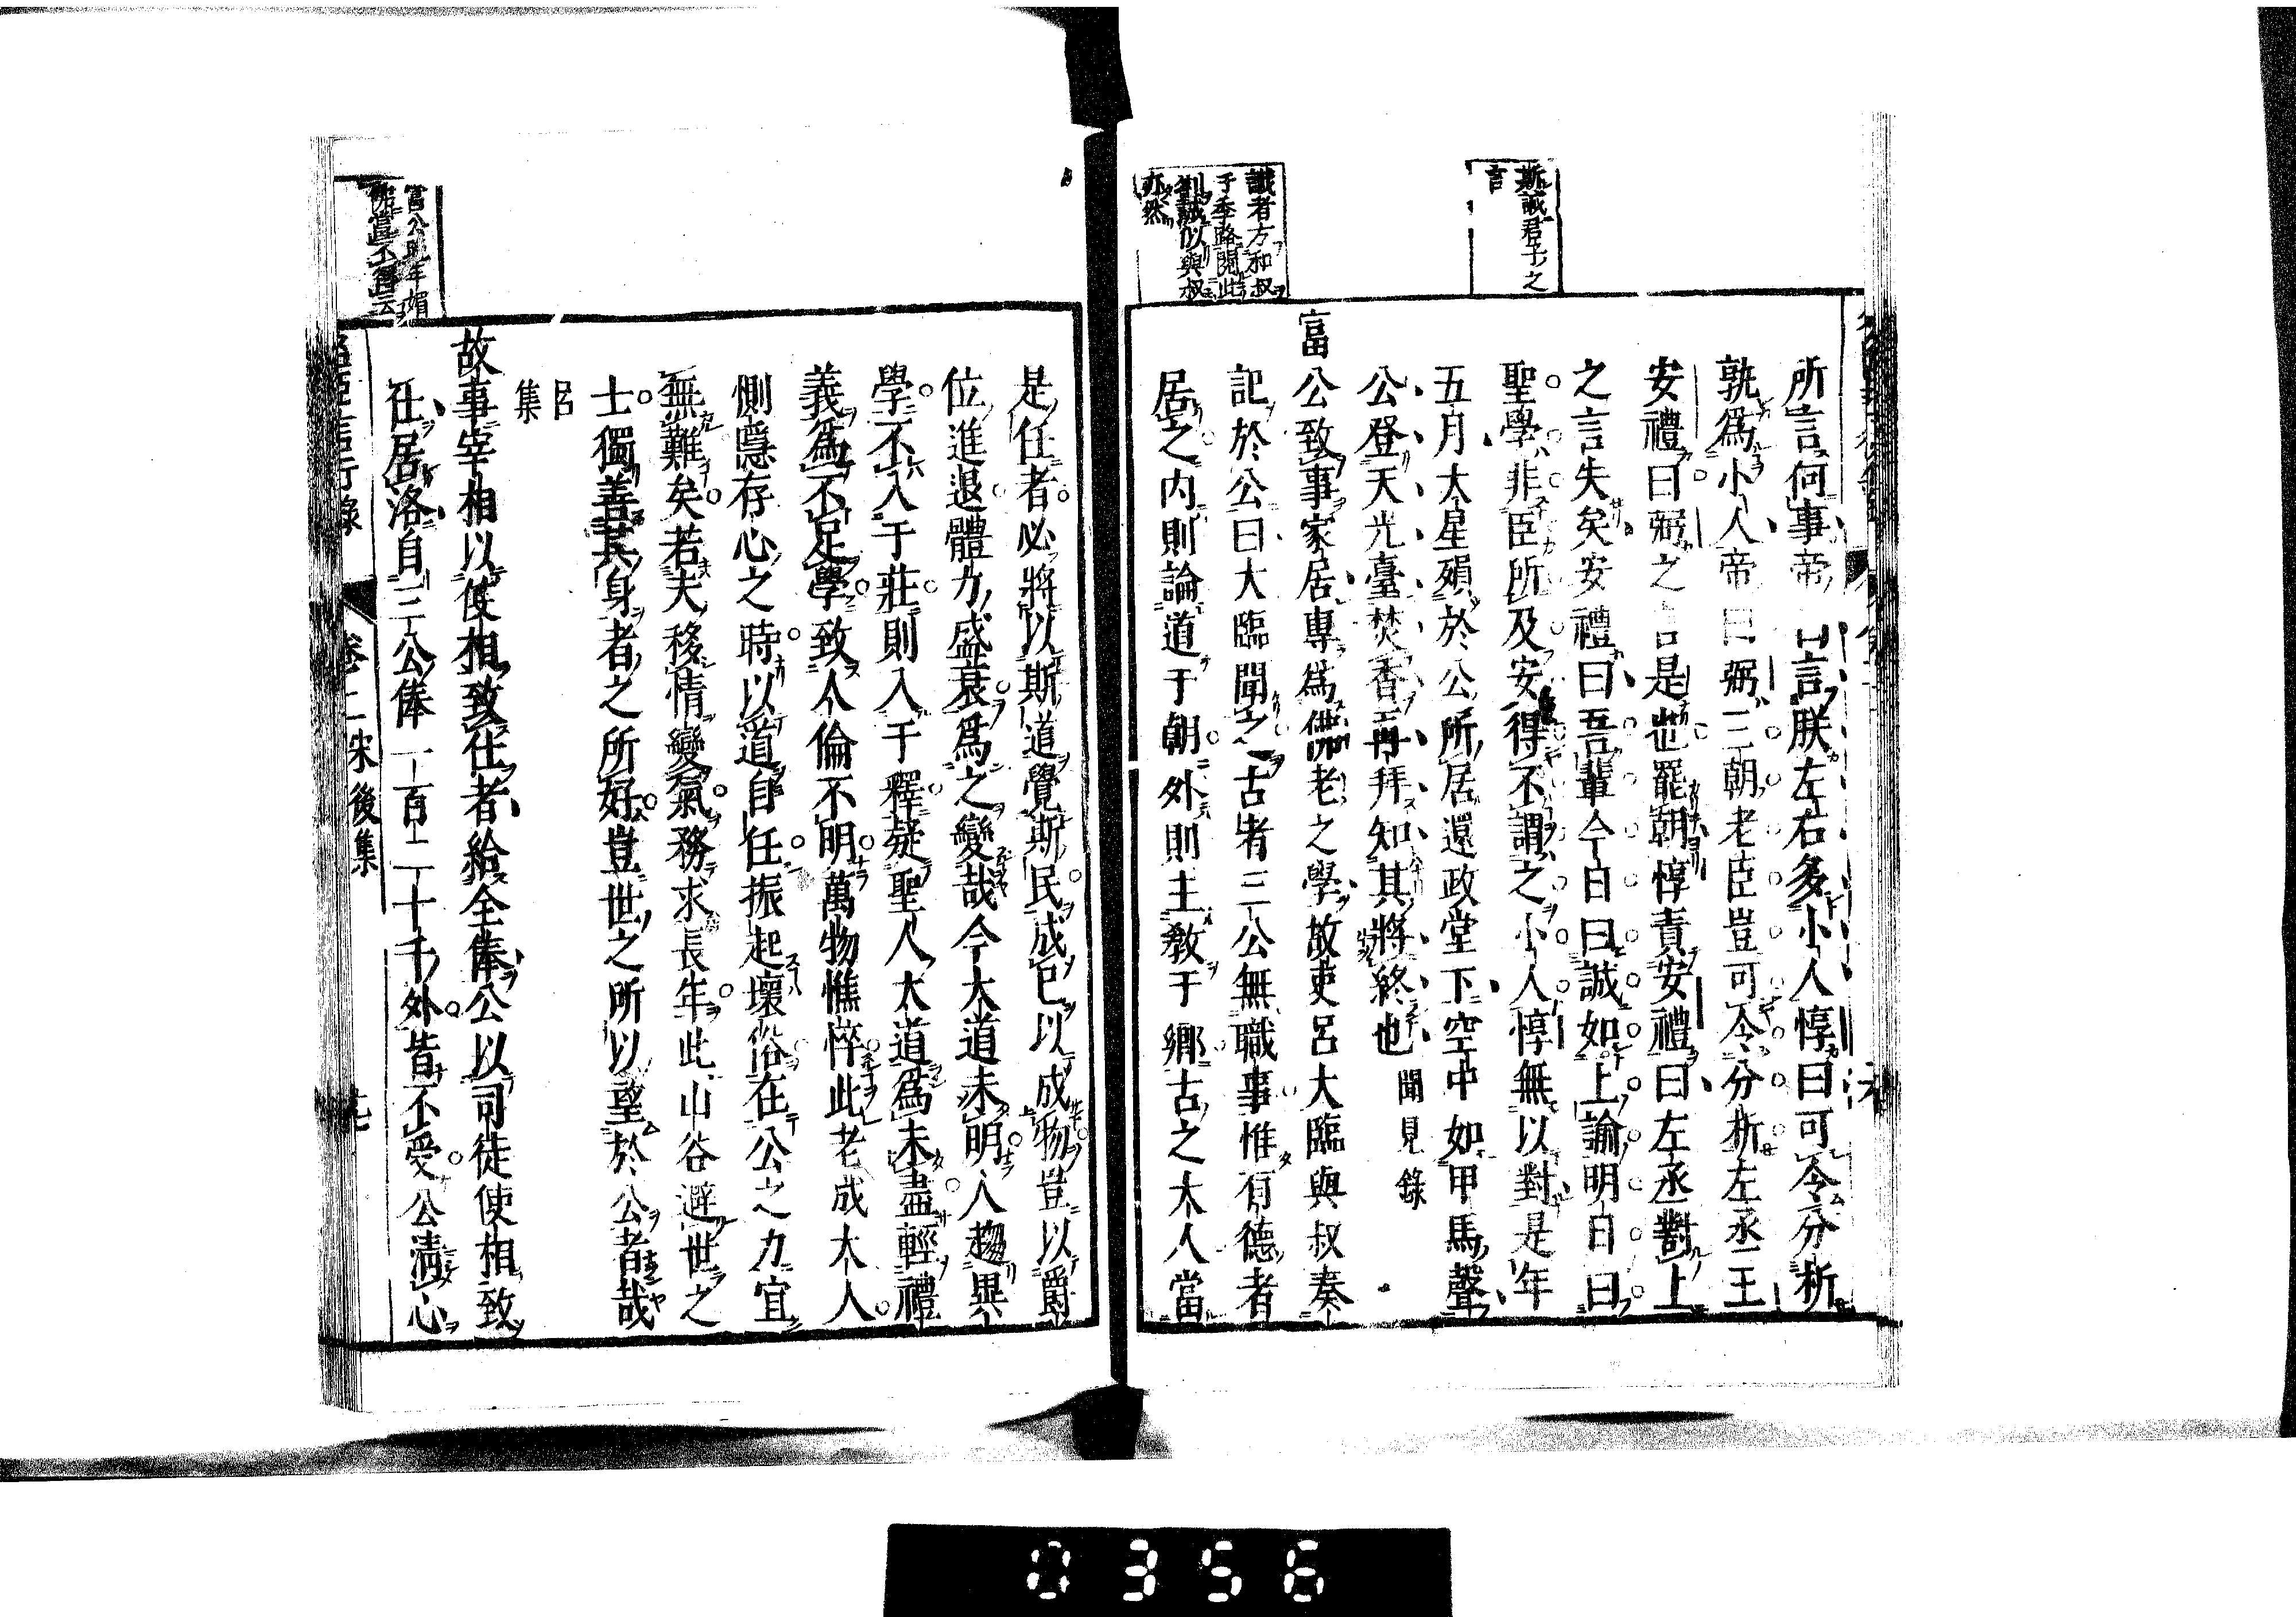 斯誠君子之
言
識者方和叔
于季路閱此
劄誠似與叔
亦然
所言何事帝曰言朕左右多小人惇曰可令分析
孰爲小人帝曰弼三朝老臣豈可令分析左丞王
安禮曰弼之言是也罷朝惇責安禮曰左丞對上
之言失矣安禮曰吾輩今日曰誠如上諭明日曰
聖學非臣所及安得不謂之小人惇無以對是年
五月大星殞於公所居還政堂下空中如甲馬聲
公登天光臺焚香再拜知其將終也 聞見錄
富公致事家居專爲佛老之學故吏呂大臨與叔奏
記於公曰大臨聞之古者三公無職事惟有德者
居之内則論道于朝外則主敎于鄉古之大人當
是任者必將以斯道覺斯民成已以成物豈以爵
位進退體力盛衰爲之變哉今大道未明人趨異
學不入于莊則入于釋疑聖人大道爲未盡輕禮
義爲不足學致人倫不明萬物憔悴此老成大人
惻隱存心之時以道自任振起壞俗在公之力宜
無難矣若夫移情變氣務求長年此山谷避世之
士獨善其身者之所好豈世之所以望於公者哉
呂
集
故事宰相以使相致仕者給全俸公以司徒使相致
仕居洛自三公俸一百二十千外皆不受公清心
富公晚年媚
佛當不得云
名臣言行錄 卷二宋後集
0356